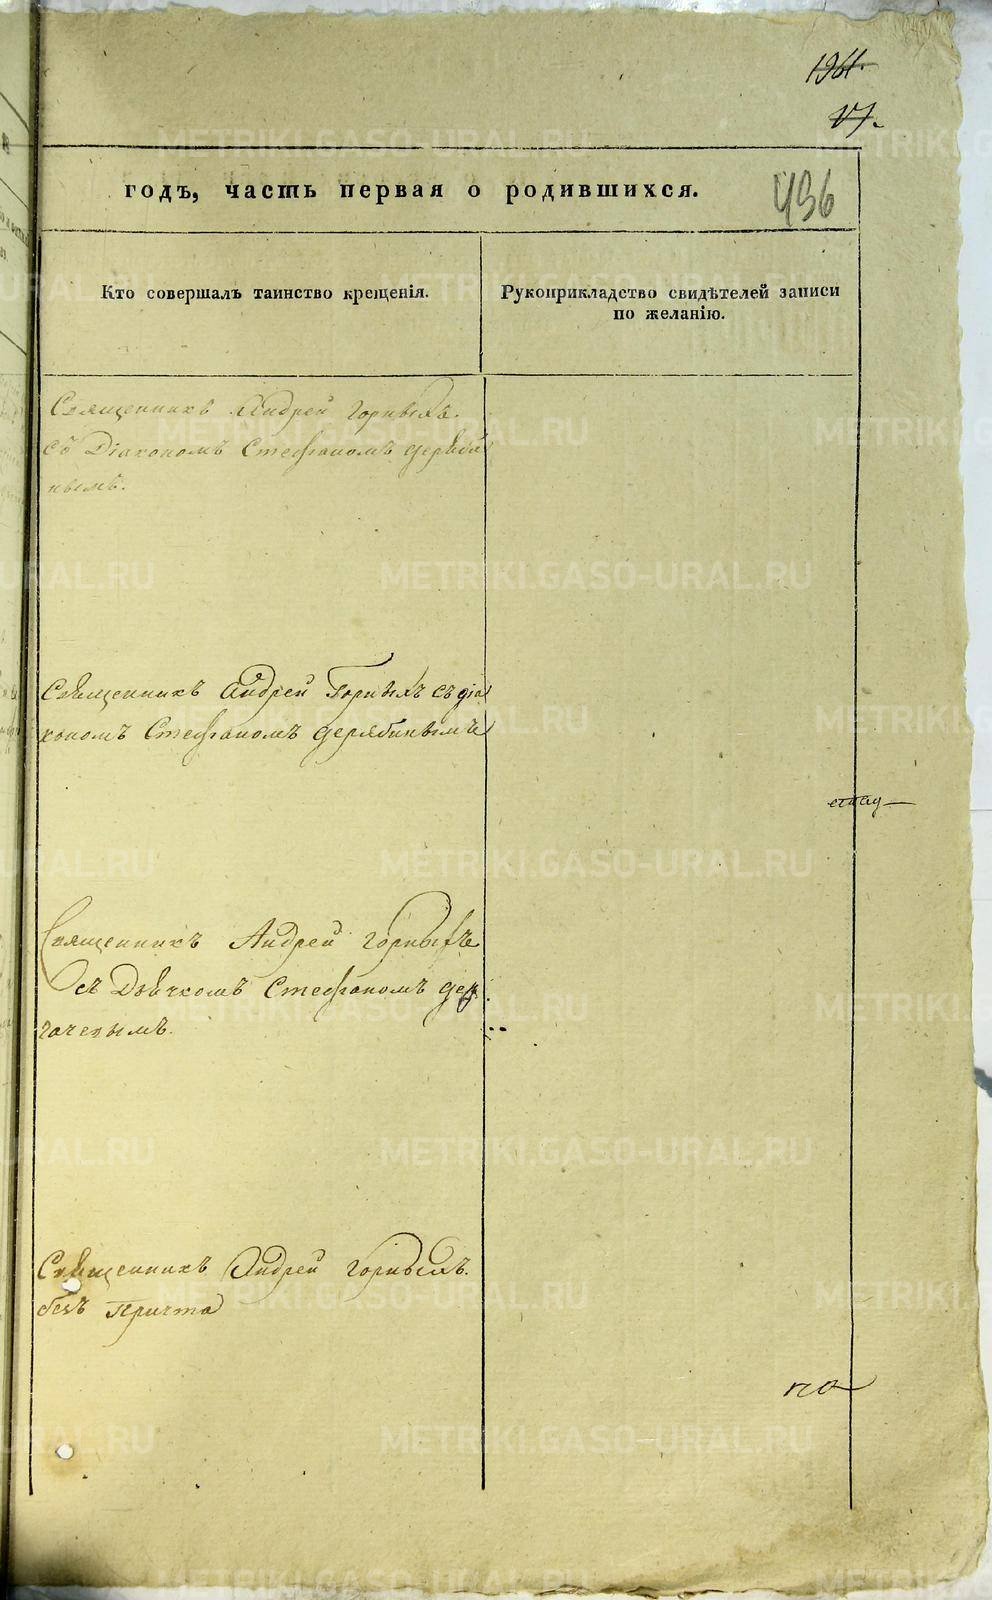 1961.
годъ, часть первая о родившихся.
436
Кто совершалъ таинство крещенія.
Рукоприкладство свидѣтелей записи
по желанію.
Священникъ Андрей Горныхъ.
съ Діакономъ Стефаномъ деряби
нымъ.
Священникъ Андрей Горныхъ съ діа
кономъ Стефаномъ дерябинымъ
Священникъ Андрей Горныхъ
съ Дьячкомъ Стефаномъ дер
гачевымъ.
Священникъ Андрей Горныхъ.
безъ Причта
по
METRIKI.GASO-URAL.RU